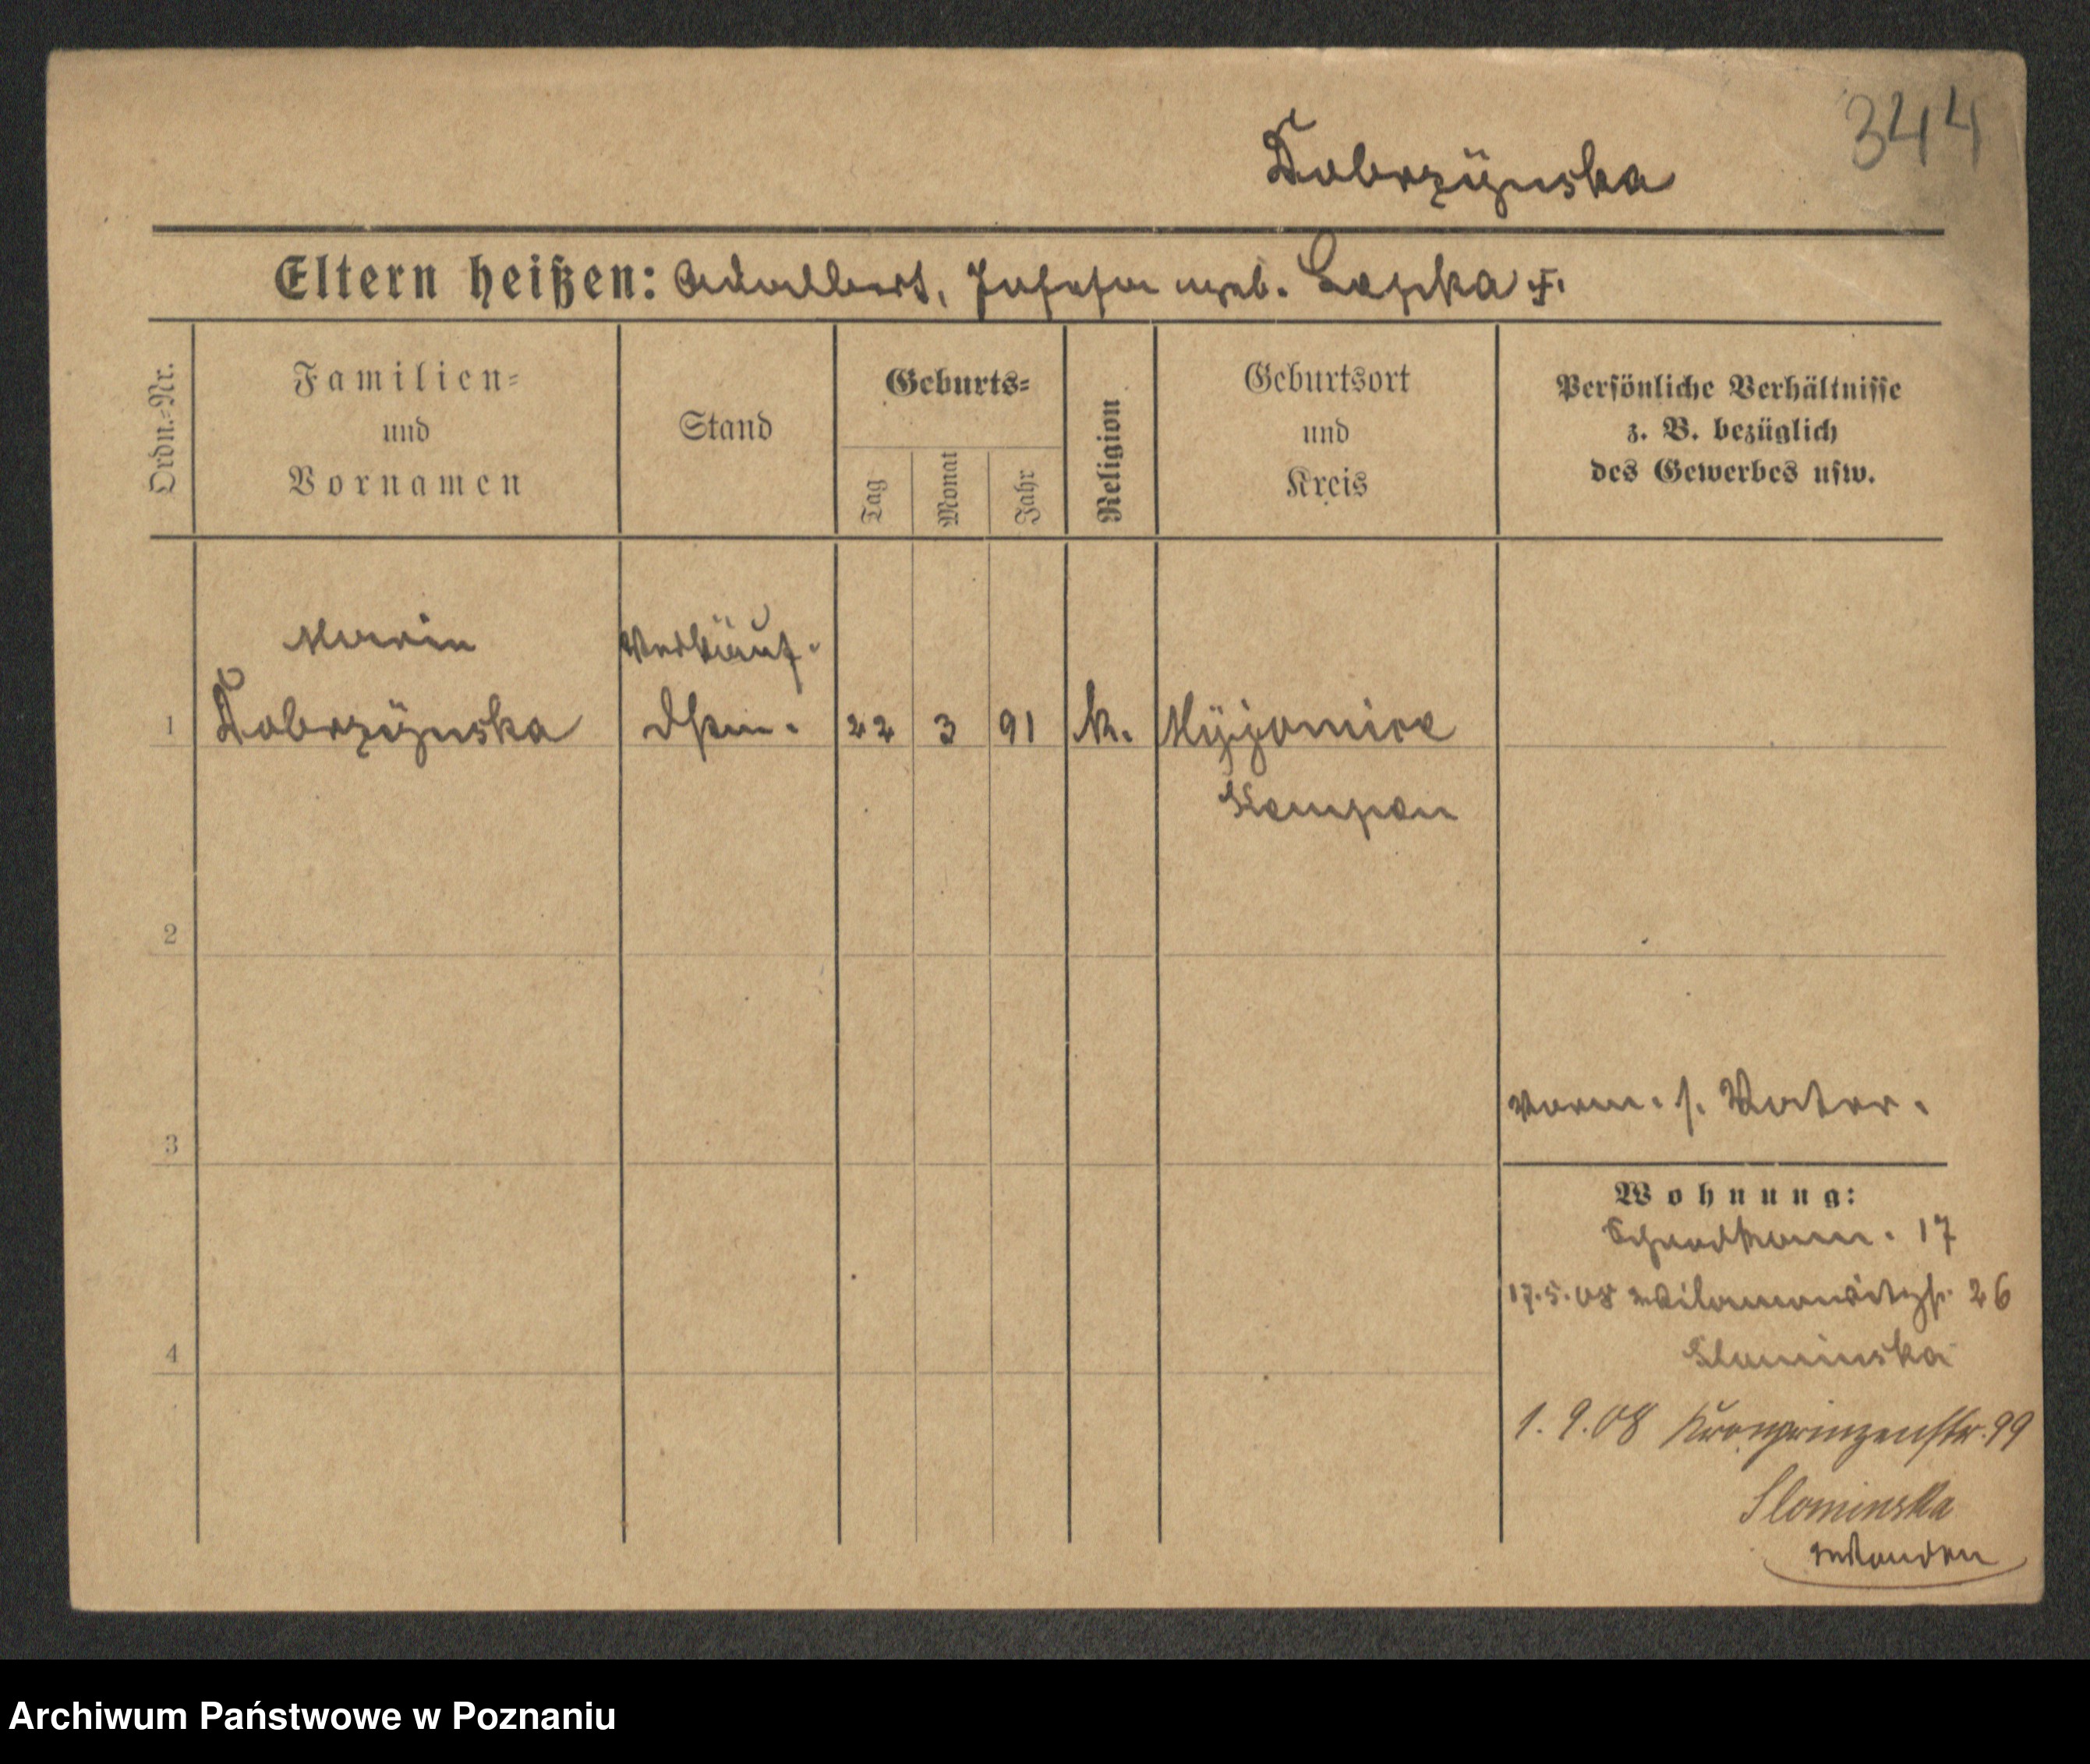 344
Dobrzÿnska
Eltern heißen: Adalbert, Josefa geb. Lapka †.
Ordn.-Nr.
Familien-
und
Vornamen
Stand
Geburts-
Tag
Monat
Jahr
Religion
Geburtsort
und
Kreis
Persönliche Verhältnisse
z. B. bezüglich
des Gewerbes usw.
Maria Verkäuf-
1 Dobrzÿnska 22 3 91 k.
Kempen
2
Vorm. s. Vater.
3
Wohnung:
17
17.5.08 26
4
Slominska
1.9.08 Kronprinzenstr. 99
Slominska
Archiwum Państwowe w Poznaniu